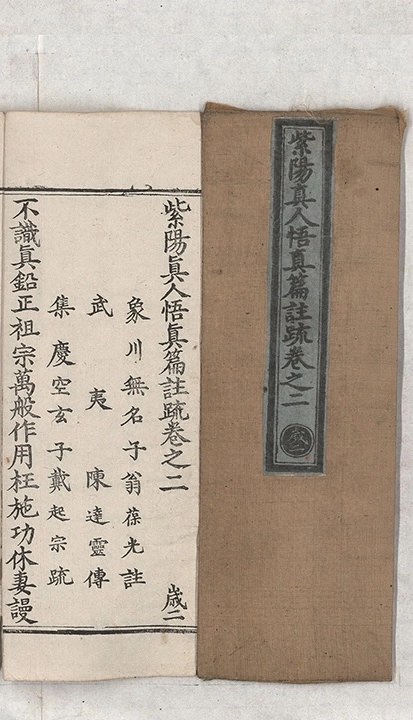 紫陽真人悟真篇註疏卷之二
歲二
紫陽眞人悟眞篇註疏卷之二 歲二
象川無名子翁葆光註
武夷陳達靈傳
集慶空玄子戴起宗疏
不識眞鉛正祖宗萬般作用枉施功休妻謾